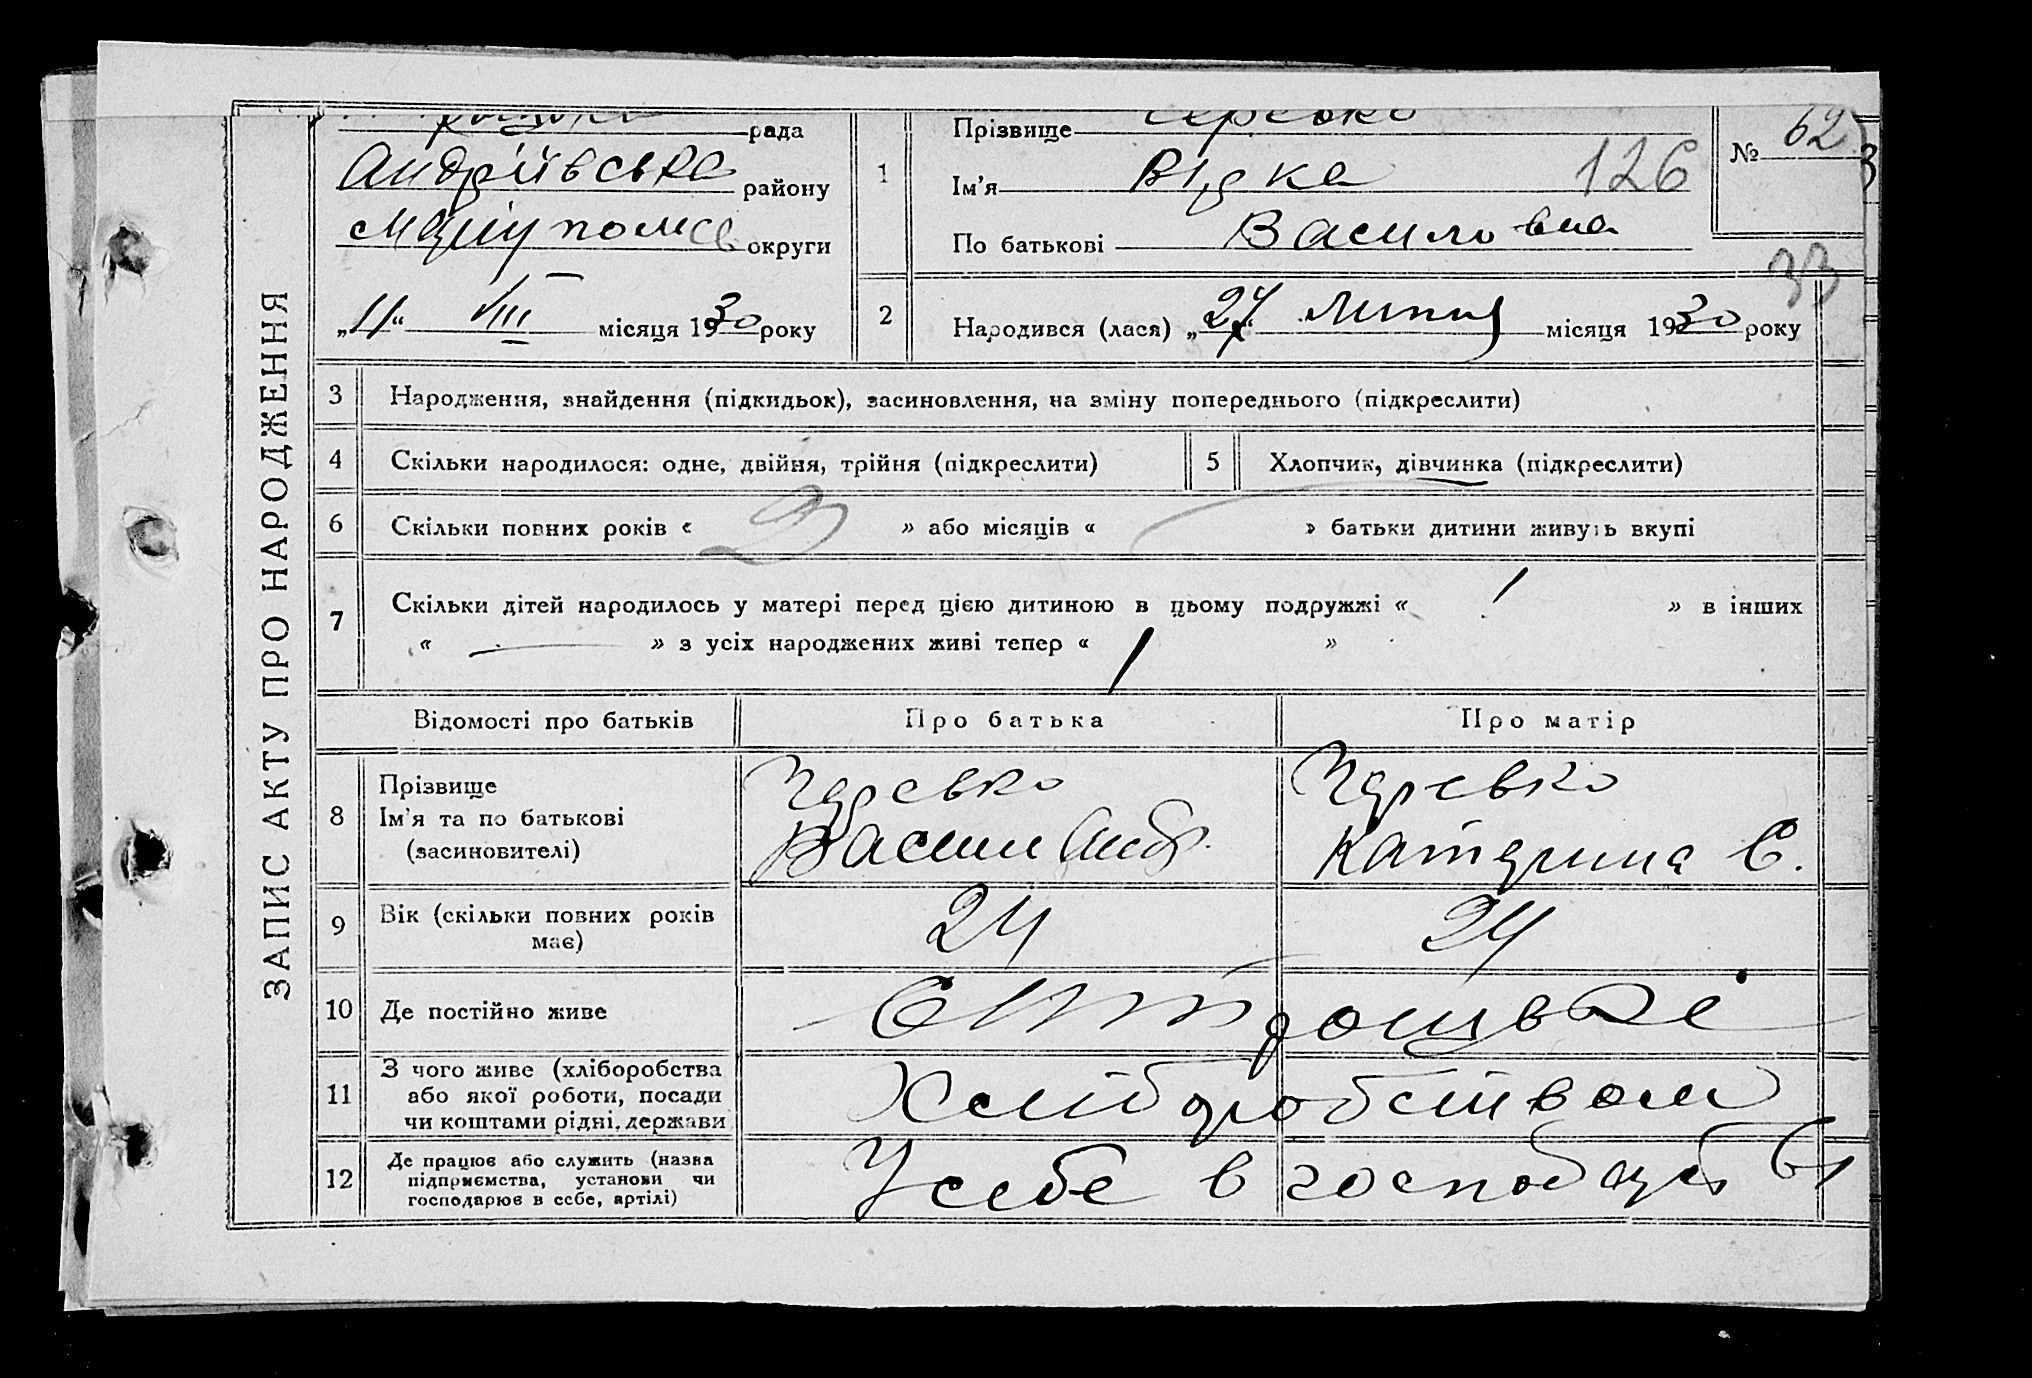 ЗАПИС АКТУ ПРО НАРОДЖЕННЯ
рада
Андріївське району
округи
„11“ VIII місяця 1930 року
1
Прізвище
Ім’я 126
По батькові Василовна
№ 62
33
2
Народився (лася) „27“ Липня місяця 1930 року
3 Народження, знайдення (підкидьок), засиновлення, на зміну попереднього (підкреслити)
4 Скільки народилося: одне, двійня, трійня (підкреслити)
5 Хлопчик, дівчинка (підкреслити)
6 Скільки повних років « 2 » або місяців « » батьки дитини живуть вкупі
7 Скільки дітей народилось у матері перед цією дитиною в цьому подружжі « 1 » в інших
« — » з усіх народжених живі тепер « 1 »
Відомості про батьків
Про батька
Про матір
8
Прізвище
Ім’я та по батькові
(засиновителі)
Василь Андр.
Катерина С.
9
Вік (скільки повних років
має)
24
24
10 Де постійно живе
11
З чого живе (хліборобства
або якої роботи, посади
чи коштами рідні, держави
Хліборобством
12
Де працює або служить (назва
підприємства, установи чи
господарює в себе, артілі)
У себе в господарстві